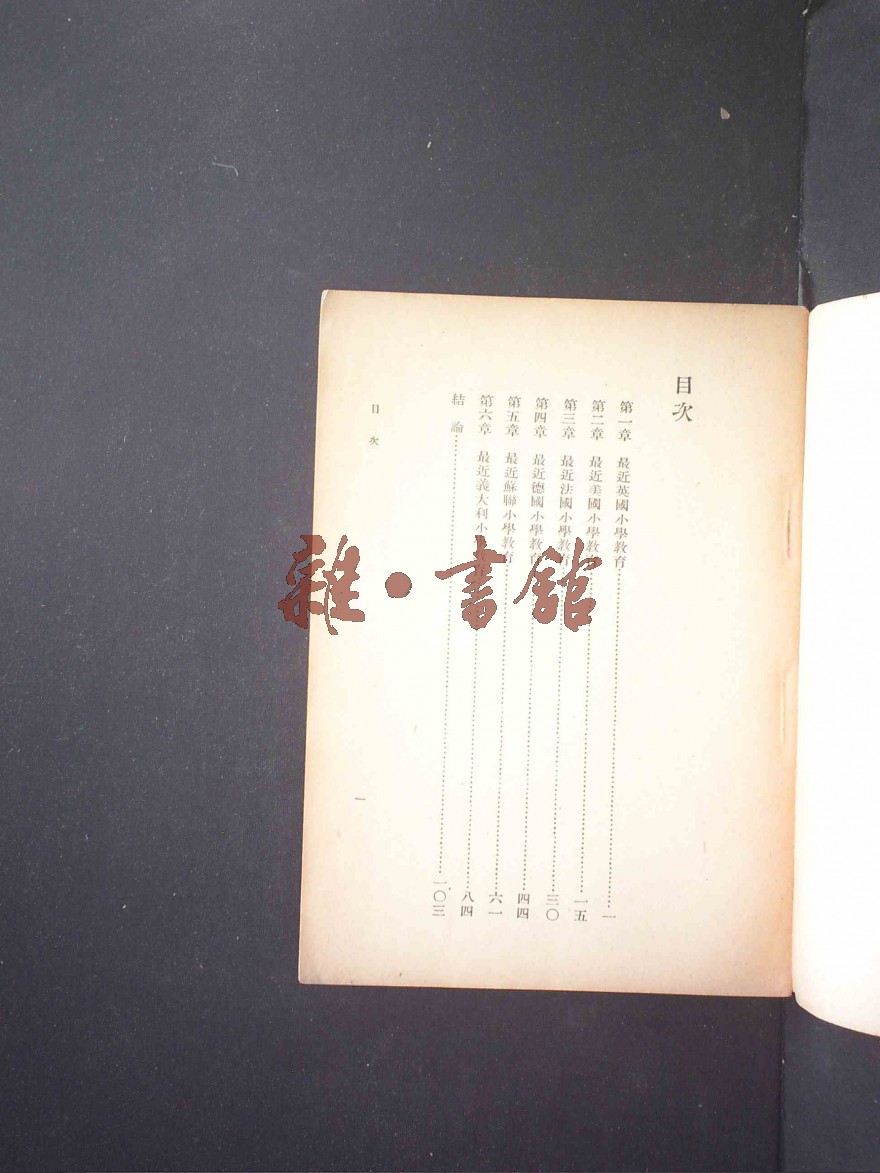 目次
第一章 最近英國小學教育……一
第二章 最近美國小學教育……一五
第三章 最近法國小學教育……三〇
第四章 最近德國小學教育……四四
第五章 最近蘇聯小學教育……六一
第六章 最近義大利小……八四
結論……一〇三
目次
一
雜·書館